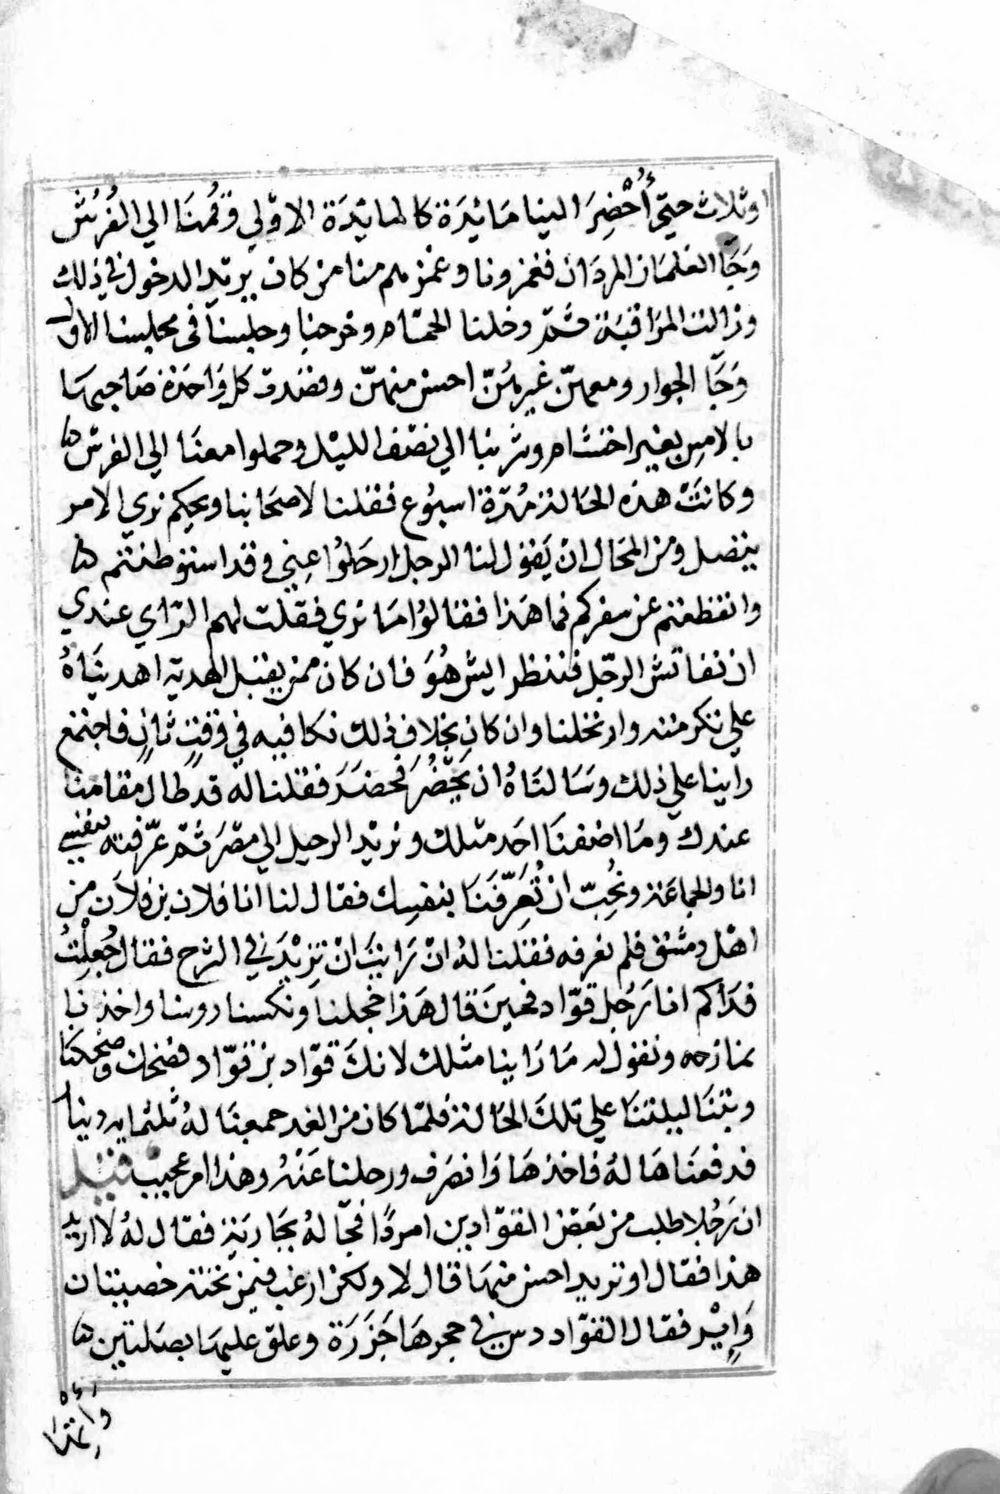 اوثلاث حتي أُحْضِرَ الينا مَائدَة كالمايدَة الاوْلي وقمُنَا الي الفُرُش
وَجَا الغلمَان المردَان فغمزونا وغمزهم منا من كان يريد الدخول في ذلك
وزالت المرَاقبَة ثمّ دخلنا الحمّام وخرجنا وجلسنا في مجلسنا الاول
وَجَا الجوار ومعهنّ غيرهُنّ احسن منهنّ وقصَدت كل وَاحدَة صَاحبهَا
بالامس بغير احتشام وشربنا الي نصْف الليْل وحملوا معنَا الي الفرش
وكانتْ هذه الحَالة مُدّة اسبُوع فقلنا لاصحَابنا ويحكم نري الامر
يتصل ومن المحَال انْ يَقول لنا الرجل ارحَلوُا عني وقد استوطنتم
وانقطعتم عن سفركم فما هَذا فقالوُا مَا تري فقلت لهم الرّاي عندي
ان نفاتش الرجّل فننظر ايش هُوَ فان كان ممن يقبل الهدية اهديْنَاهُ
علي تكرمته وارتحلنا وان كان بخلاف ذلك نكافيه في وَقتٍ ثانٍ فاجتمع
راينا علي ذلك وَسَالنَاهُ ان يَحْضُر فحضَرَ فقلنا له قد طال مقامنا
عندك ومَا اضفنَا احَد مثلك ونريد الرحيل الي مصْر ثمّ عرّفته بنفسي
انا والجماعَة ونُحِبّ انْ تُعَرِّفَنَا بنفسِك فقال لنا انا فلان بن فلاَن من
اهْل دمشق فلم نعرفه فقلنا لهُ انْ رَايتَ انْ تزيْدَ في الشرح فقال جُعِلْتُ
فدَاكم انا رَجُل قوّاد فحينَ قال هَذا خجلنا ونكسنا روسنا واخذنا
نمازحه ونقول له مَا رَاينا مثلك لانكَ قوّاد بن قوّاد فضحك وضحكنَا
وبتنَا ليلتنَا علي تلكَ الحَالة فلمّا كان من الغد جمعنَا لهُ ثلثماية دينار
فدفعنَاهَا لهُ فاخذهَا وَانصَرَف ورحلنا عَنْهُ وهذا امر عجيبْ قيْل
ان رَجُلا طلب من بَعض القوّادين امردًا فجَا لهُ بجَاريَة فقال لهُ لا اريد
هذا فقال اوتريد احسن منهَا قال لا ولكن ارغب فيمن تحته خصيتان
وَإيْر فقال القوّاد دس في حجرهَا جَزَرَة وعلق عليهَا بصَلتين